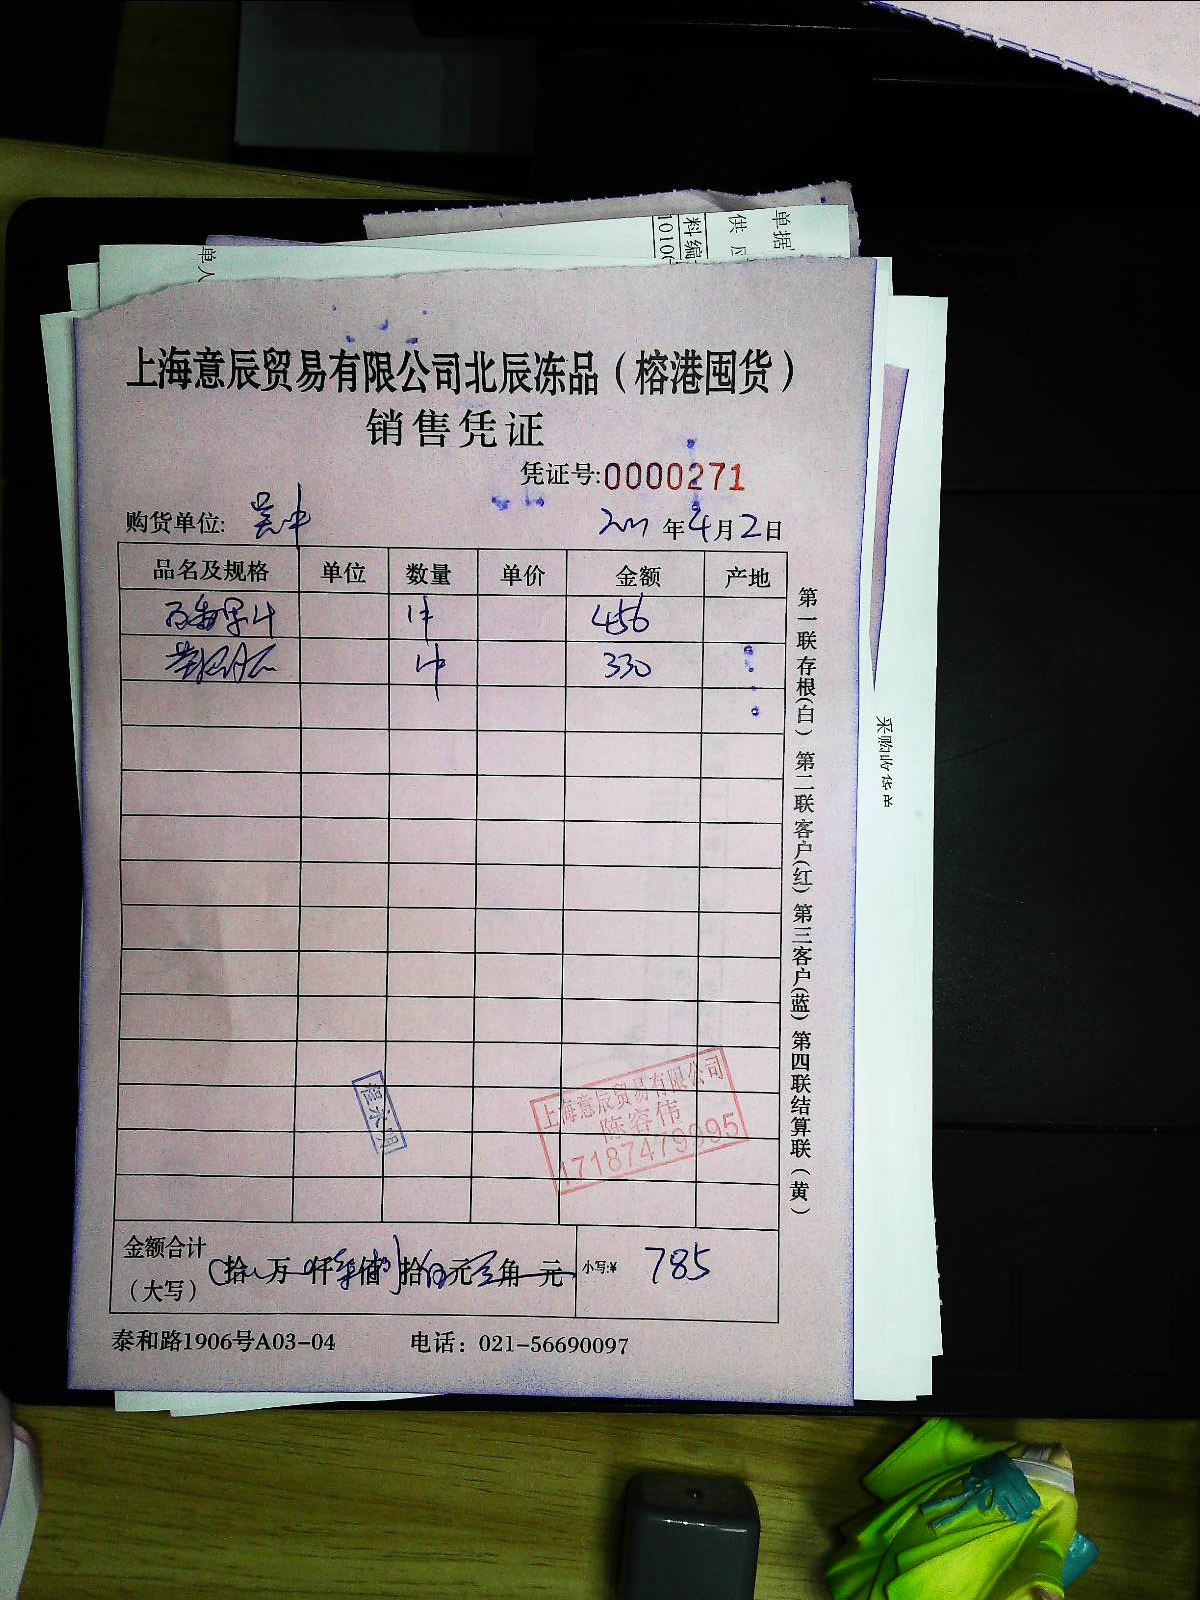 单据
供应
料编
1010
单人
上海意辰贸易有限公司北辰冻品（榕港囤货）
销售凭证
凭证号:0000271
购货单位: 吴中 年4月2日
品名及规格 单位 数量 单价 金额 产地
百香果汁 1件 456
1件 330
上海意辰贸易有限公司
陈容伟
程永明
金额合计
（大写） 拾 万 仟 柒佰 拾 元 角 元 小写:¥ 785
泰和路1906号A03-04 电话：021-56690097
第一联存根(白) 第二联客户(红) 第三客户(蓝) 第四联结算联（黄）
采购收货单